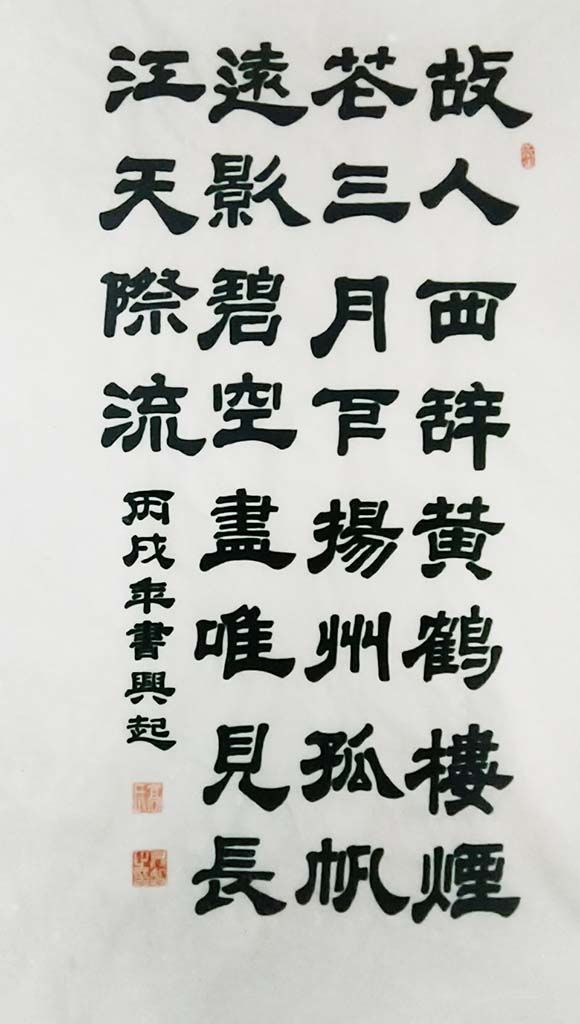 故人西辞黄鹤樓煙
花三月下揚州孤帆
遠影碧空盡唯見長
江天際流
丙戌年書興起